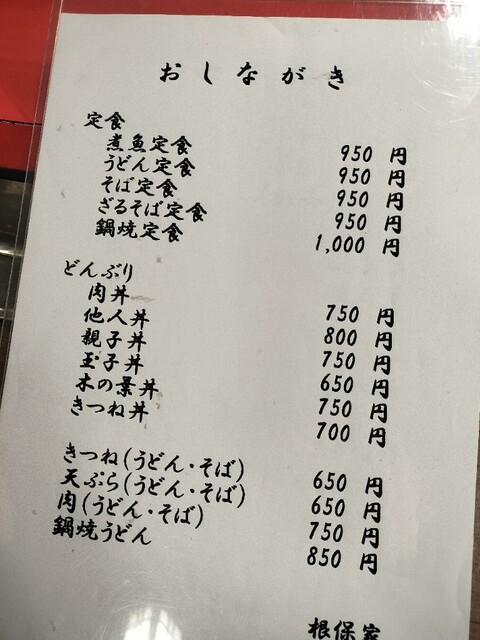 おしながき
定食
煮魚定食 950 円
うどん定食 950 円
そば定食 950 円
ざるそば定食 950 円
鍋焼定食 1,000 円
どんぶり
肉丼 750 円
他人丼 800 円
親子丼 750 円
玉子丼 650 円
木の葉丼 750 円
きつね丼 700 円
きつね(うどん・そば) 650 円
天ぷら(うどん・そば) 650 円
肉(うどん・そば) 750 円
鍋焼うどん 850 円
根保家